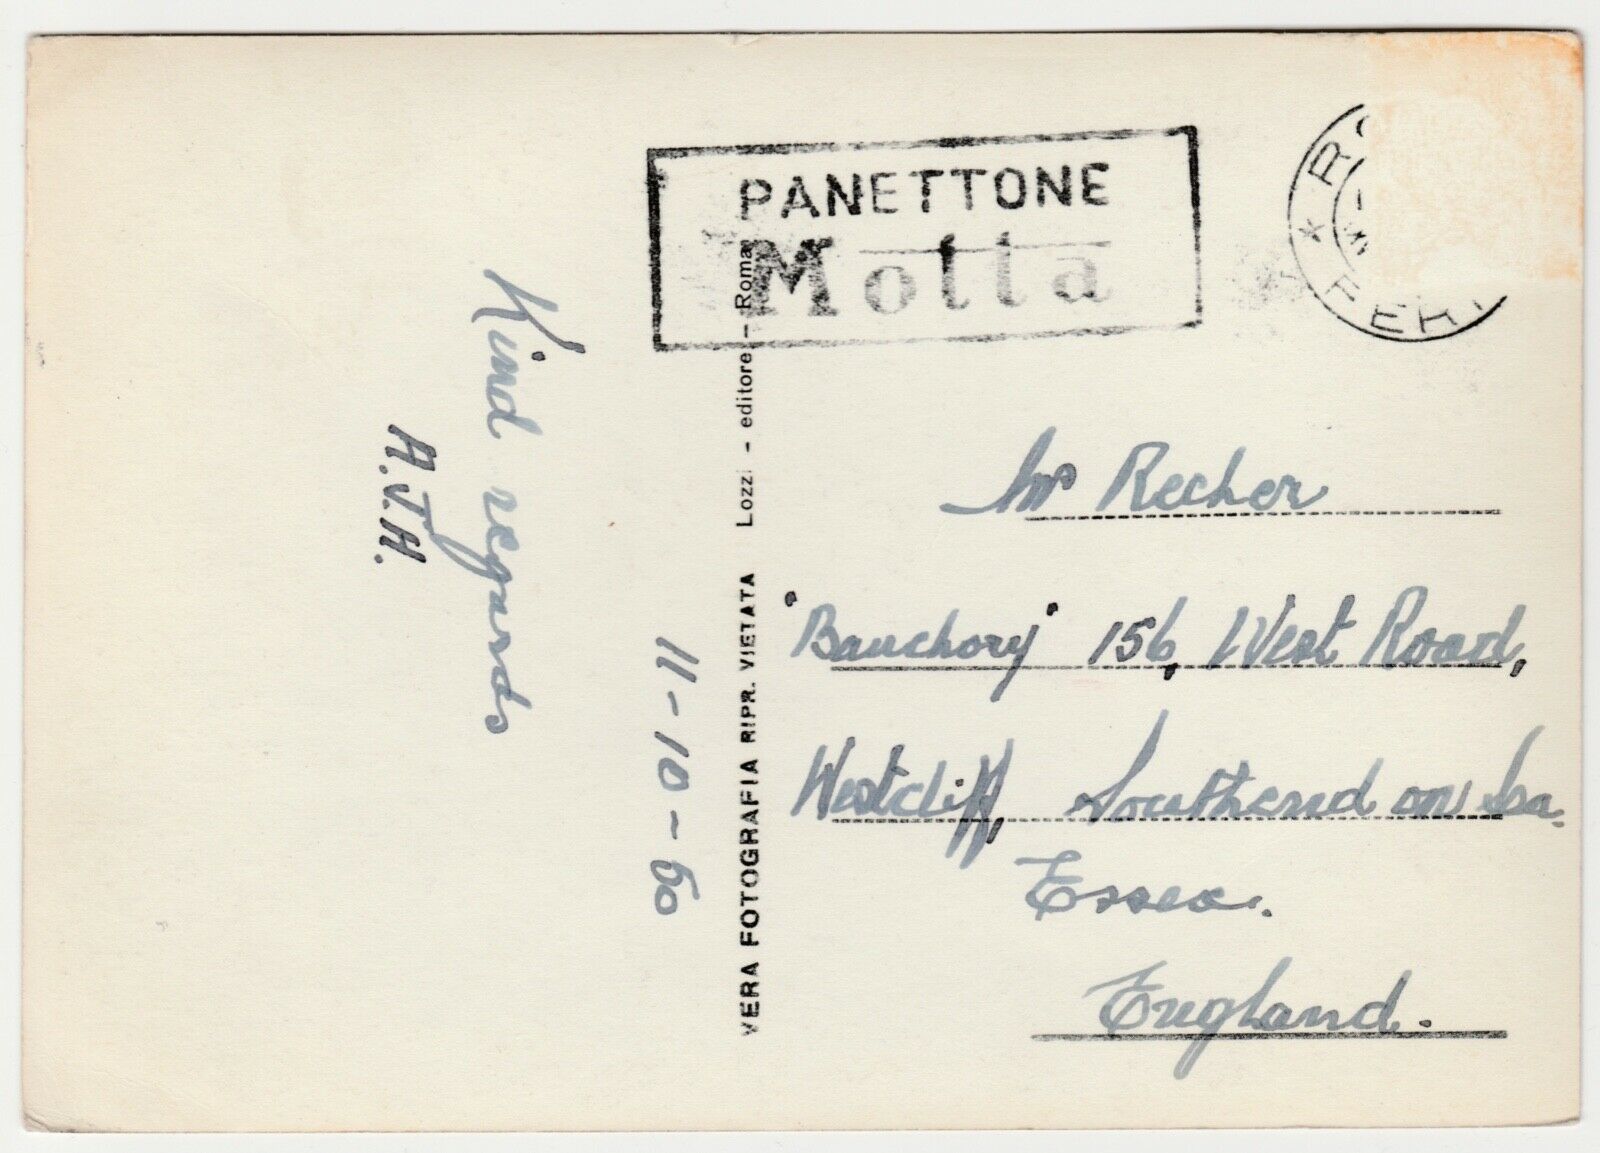 Kind regards
A.J.H.
11-10-60
VERA FOTOGRAFIA RIPR. VIETATA Lozzi - editore - Roma
PANETTONE
Motta
FER
Recher
"Banchory" 156, West Road,
Westcliff, Southend on Sea.
Essex.
England.